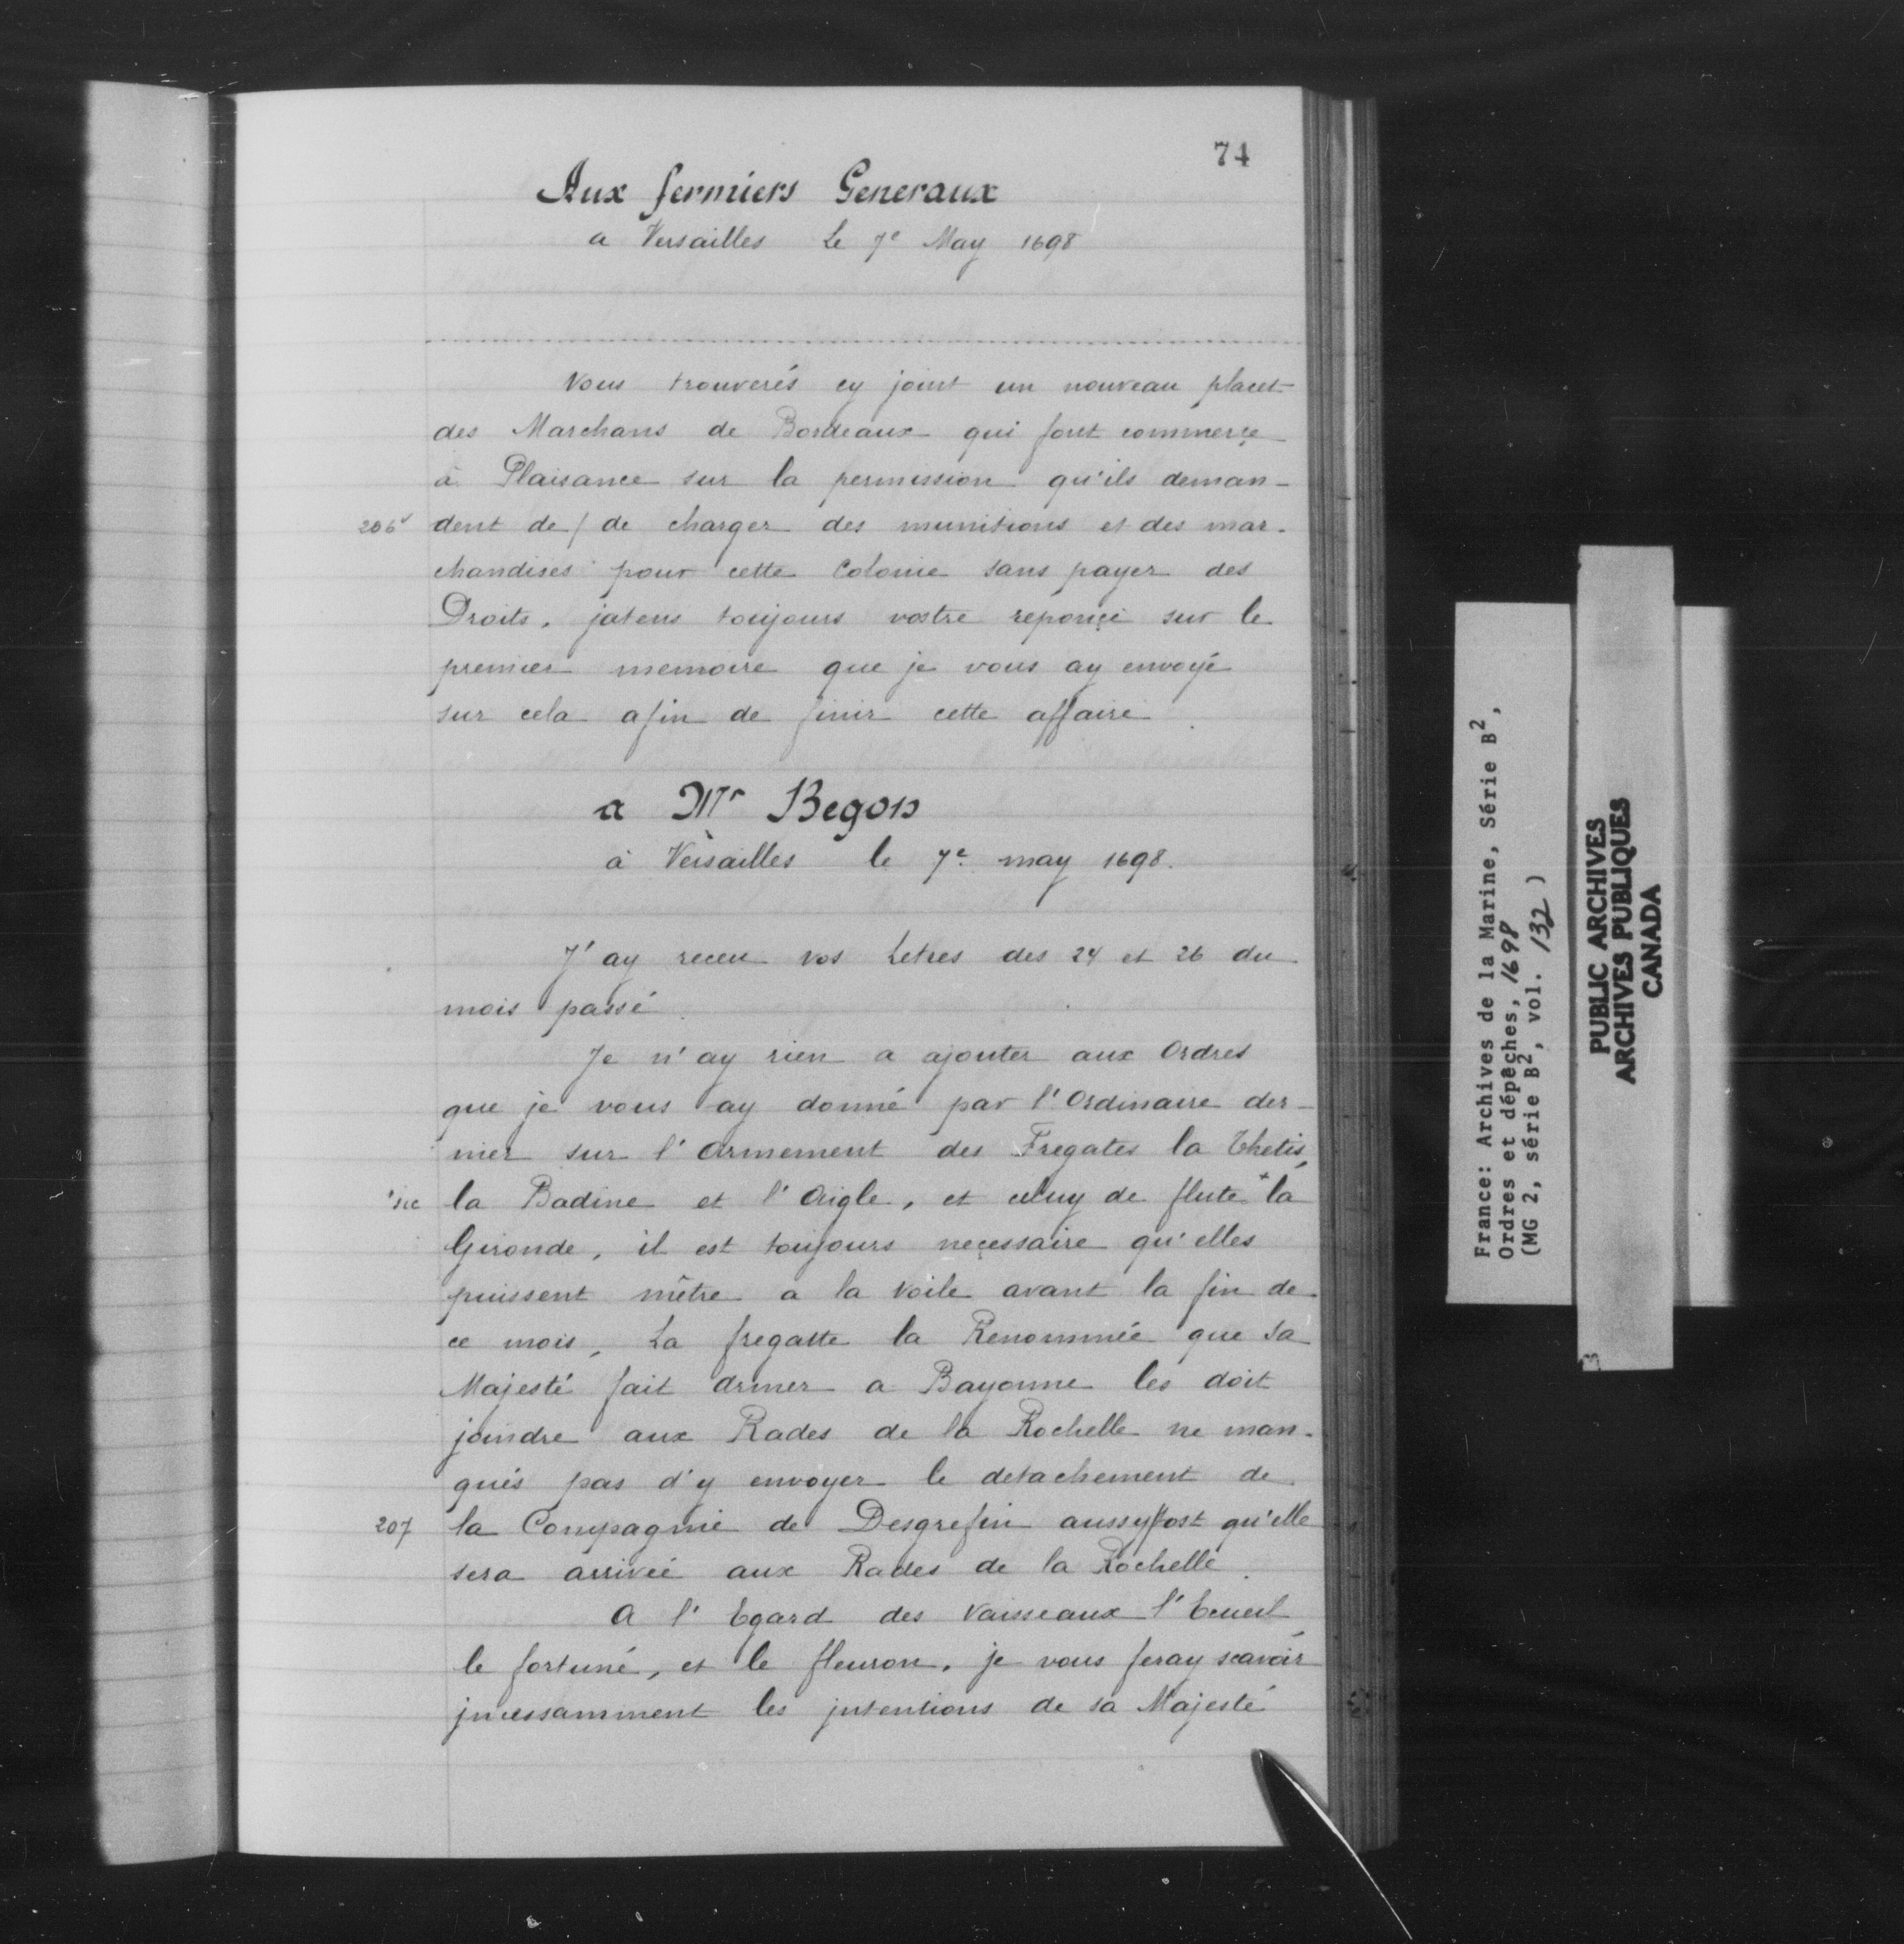 74
Aux fermiers Generaux
a Versailles Le 7e May 1698
Vous trouverés cy joint un nouveau placet
des Marchans de Bordeaux qui font commerçe
à Plaisance sur la permission qu'ils deman-
206v dent de / de charger des munitions et des mar-
chandises pour cette Colonie sans payer des
Droits. jatens toujours vostre reponçe sur le
premier memoire que je vous ay envoyé
sur cela afin de finir cette affaire.
a Mr Begon
à Versailles le 7e may 1698.
J'ay receu vos Letres des 24 et 26 du
mois passé.
Je n'ay rien a ajouter aux Ordres
que je vous ay donné par l'Ordinaire der-
nier sur l'armement des Fregates la Thetis,
+sic la Badine et l'Aigle, et celuy de flute + la
Gironde, il est toujours neçessaire qu'elles
puissent mêtre a la voile avant la fin de
ce mois, La fregatte la Renommée que sa
Majesté fait armer a Bayonne les doit
joindre aux Rades de la Rochelle ne man-
qués pas d'y envoyer le detachement de
207 la Compagnie de Desgrefin aussy/tost qu'elle
sera arrivée aux Rades de la Rochelle.
A l'Egard des Vaisseaux l'Ecueil,
le fortuné, et le fleuron. je vous feray scavoir
jncessamment les jntentions de sa Majesté
France: Archives de la Marine, Série B2,
Ordres et dépêches, 1698
(MG 2, série B2, vol. 132)
PUBLIC ARCHIVES
ARCHIVES PUBLIQUES
CANADA